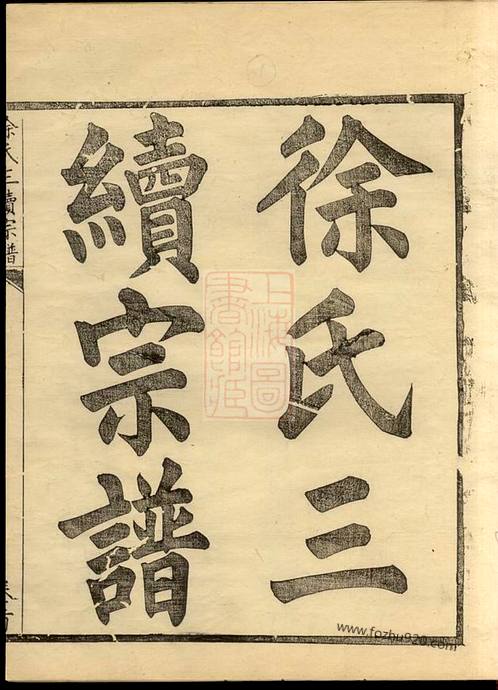 徐氏三
續宗譜
上海圖
書館藏
徐氏三續宗譜
卷首
www.fozhu920.com